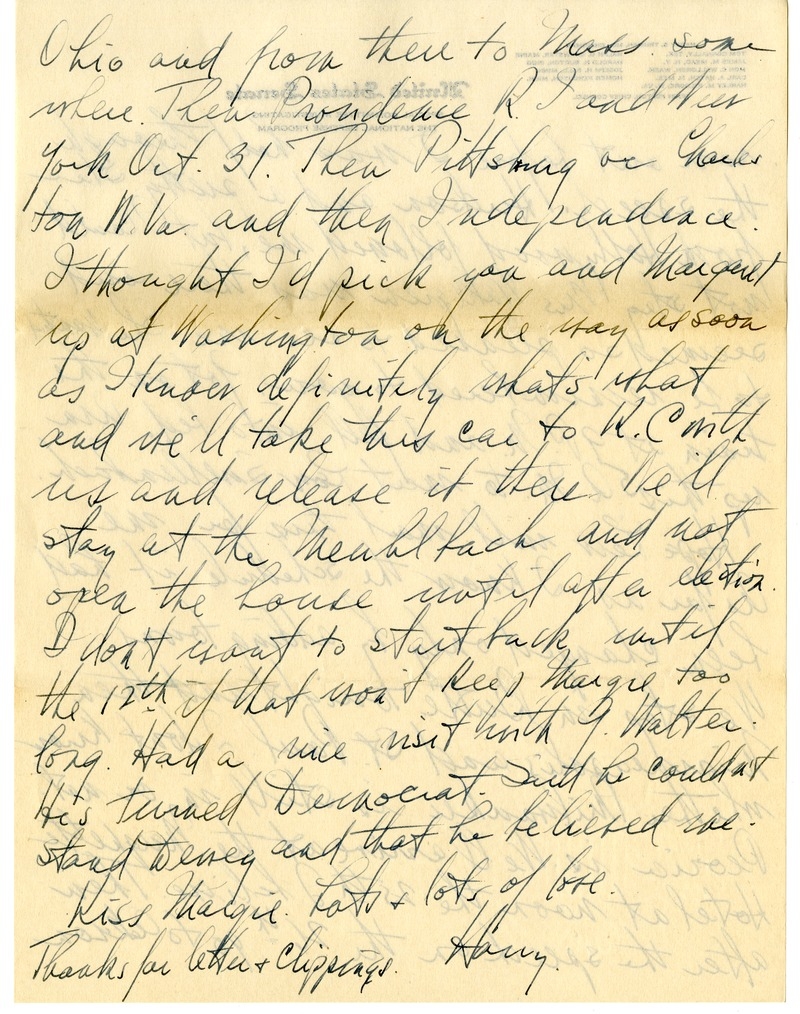 Ohio and from there to Mass. some
where. Then Providence R.I and New
York Oct. 31. Then Pittsburg or Charles
ton W.Va. and then Independence.
I thought I'd pick you and Margaret
up at Washington on the way as soon
as I know definitely what's what
and we'll take this car to K.C with
us and release it there. We'll
stay at the Meuhlbach and not
open the house until after election.
I don't want to start back until
the 12th if that won't keep Margie too
long. Had a nice visit with G. Walter.
He's turned Democrat. Said he couldn't
stand Dewey and that he believed me.
Kiss Margie. Lots & lots of love.
Harry.
Thanks for letter & clippings.
United States Senate